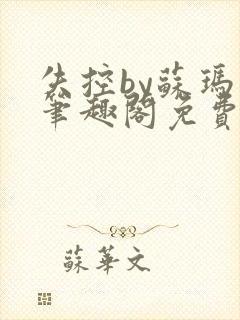 失控by蘇瑪麗
筆趣閣免費
蘇華文